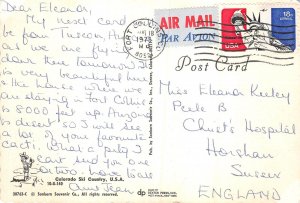 Dear Eleanor,
My next card will
be from Tucson, Ariz
as we are flying
down there tomorrow. It
is very beautiful here
is the house where we
are staying in Fort Collins
is 8000 feet up. Arizona
is desert so I'll see
a lot of your favourite
cacti. What a pity I
can't send you one
too. Love
Aunt Jean
AIR MAIL
PAR AVION
FORT COLLINS, CO
1975
USA
18c
Post Card
Miss Eleanor Keeley
Peele B
Christ's Hospital
Horsham
Sussex
ENGLAND
Colorado Ski Country, U.S.A.
© Sanborn Souvenir Co., All Rights Reserved
dp